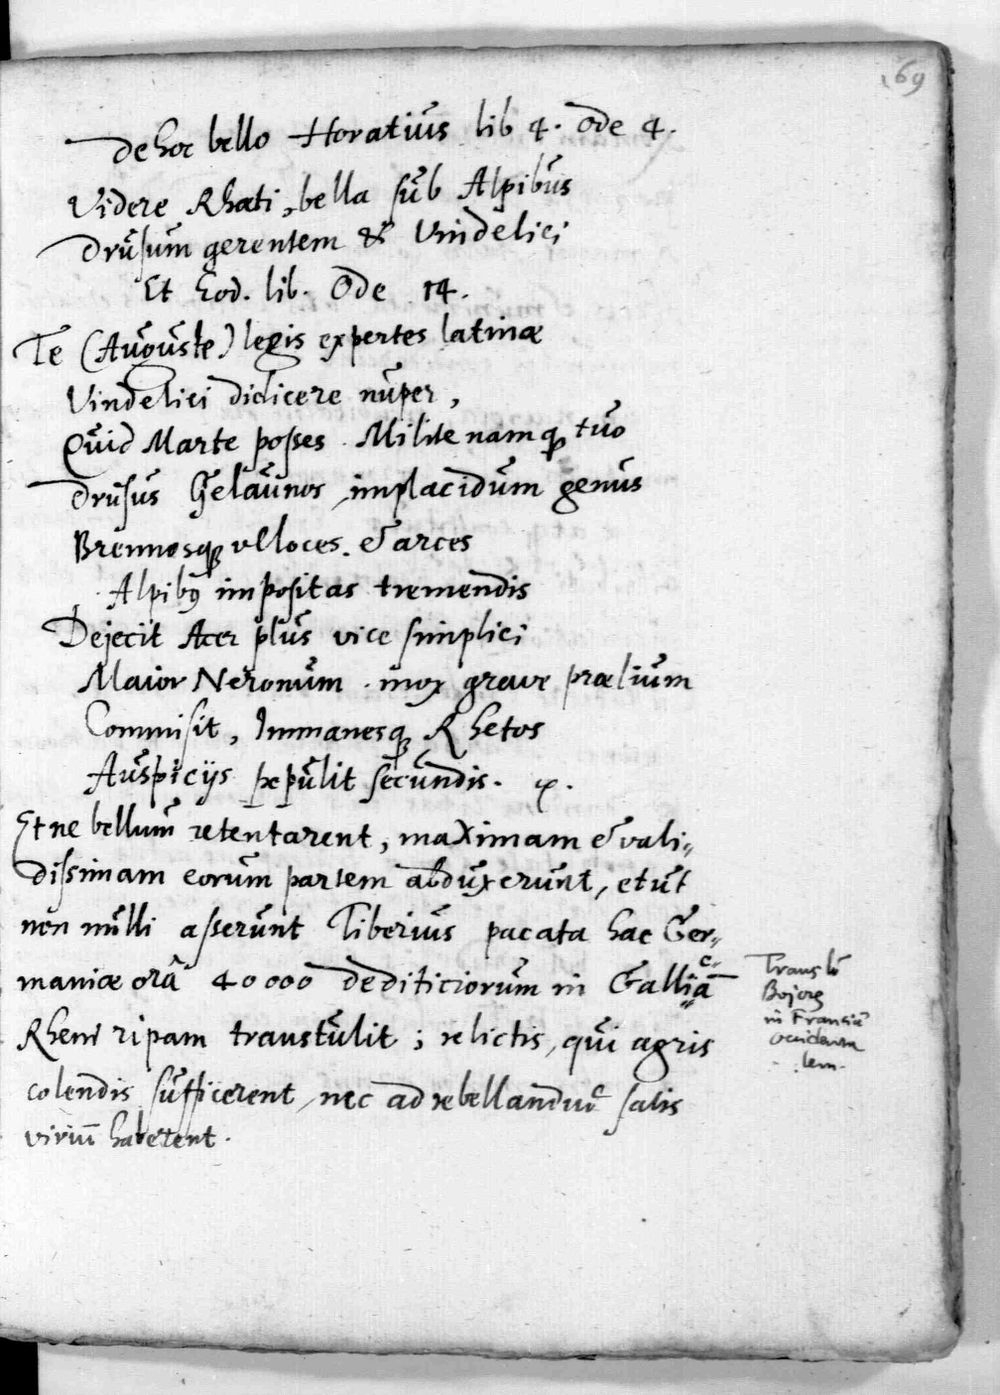 169
De hoc bello Horatius lib 4. Ode 4.
Videre Rhæti, bella sub Alpibus
Drusum gerentem & Vindelici
Et Eod. lib. Ode 14.
Te (Auguste) legis expertes latinæ
Vindelici didicere nuper,
Quid Marte posses. Milite namq tuo
Drusus Gelaunos, implacidum genus
Brennosq velloces. & arces
Alpibꝰ impositas tremendis
Dejecit Acer plus vice simplici
Maior Neronum. mox grave prælium
Commisit, Immanesq Rhetos
Auspicijs pepulit secundis.
Et ne bellum retentarent, maximam & vali„
dissimam eorum partem abduxerunt, et ut
non nulli asserunt Tiberius pacata hac Ger„
maniæ orâ 40000 dediticiorum in Gallicā
Rheni ripam transtulit; relictis, qui agris
colendis sufficerent, nec ad rebellandū satis
viriū haberent.
Translō
Bojorꝫ
in Franciā
occidenta
lem.